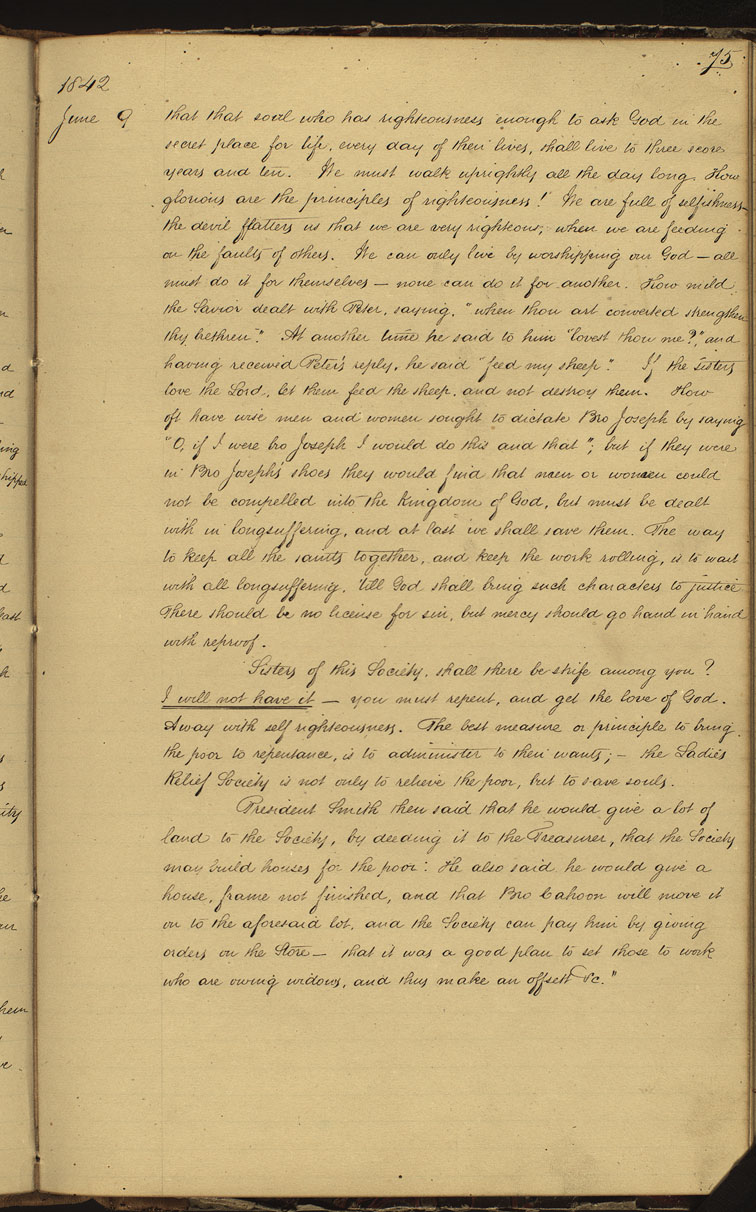 75
1842
June 9 that that soul who has righteousness enough to ask God in the
secret place for life, every day of their lives, shall live to three score
years and ten. We must walk uprightly all the day long. How
glorious are the principles of righteousness! We are full of selfishness—
the devil flatters us that we are very righteous, when we are feeding
on the faults of others. We can only live by worshipping our God — all
must do it for themselves — none can do it for another. How mild
the Savior dealt with Peter, saying, "when thou art converted strengthen
thy brethren". At another time he said to him "lovest thou me?", and
having received Peter's reply, he said "feed my sheep". If the sisters
love the Lord, let them feed the sheep, and not destroy them. How
oft have wise men and women sought to dictate Bro Joseph by saying
"O, if I were bro Joseph I would do this and that"; but if they were
in Bro Joseph's shoes they would find that men or women could
not be compelled into the kingdom of God, but must be dealt
with in longsuffering, and at last we shall save them. The way
to keep all the saints together, and keep the work rolling, is to wait
with all longsuffering, 'till God shall bring such characters to justice
There should be no license for sin, but mercy should go hand in hand
with reproof.
Sisters of this Society, shall there be strife among you?
I will not have it — you must repent, and get the love of God.
Away with self righteousness. The best measure or principle to bring
the poor to repentance, is to administer to their wants; — the Ladies
Relief Society is not only to relieve the poor, but to save souls.
President Smith then said that he would give a lot of
land to the Society, by deeding it to the Treasurer, that the Society
may build houses for the poor: He also said he would give a
house, frame not finished, and that Bro Cahoon will move it
on to the aforesaid lot, and the Society can pay him by giving
orders on the Store — that it was a good plan to set those to work
who are owing widows, and thus make an offsett &c."